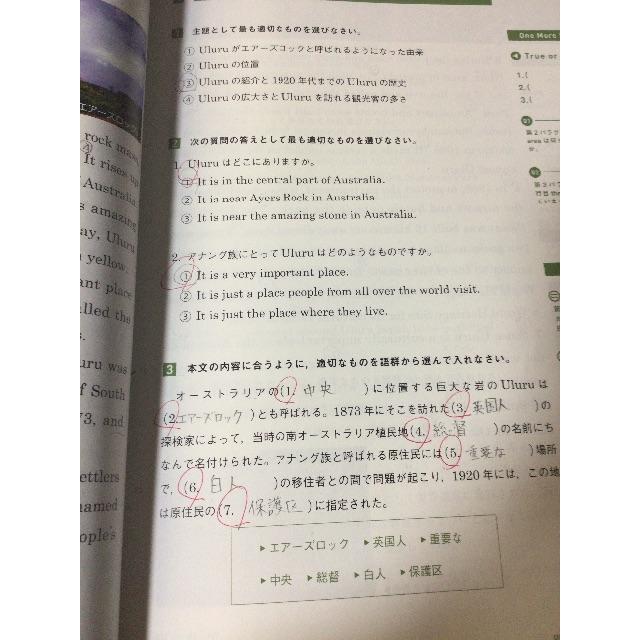 エアーズロック
rock mass
It rises up
Australia
s amazing
ay, Uluru
yellow.
ant place
lled the
s.
uru was
f South
73, and
ettlers
named
ople's
1 主題として最も適切なものを選びなさい。
① Uluru がエアーズロックと呼ばれるようになった由来
② Uluru の位置
③ Uluru の紹介と 1920 年代までの Uluru の歴史
④ Uluru の広大さと Uluru を訪れる観光客の多さ
2 次の質問の答えとして最も適切なものを選びなさい。
1. Uluru はどこにありますか。
① It is in the central part of Australia.
② It is near Ayers Rock in Australia
③ It is near the amazing stone in Australia.
2. アナング族にとって Uluru はどのようなものですか。
① It is a very important place.
② It is just a place people from all over the world visit.
③ It is just the place where they live.
3 本文の内容に合うように，適切なものを語群から選んで入れなさい。
オーストラリアの(1. 中央 )に位置する巨大な岩の Uluru は
(2. エアーズロック )とも呼ばれる。1873 年にそこを訪れた(3. 英国人 )の
探検家によって，当時の南オーストラリア植民地(4. 総督 )の名前にち
なんで名付けられた。アナング族と呼ばれる原住民には(5. 重要な )場所
で，(6. 白人 )の移住者との間で問題が起こり，1920 年には，この地
は原住民の(7. 保護区 )に指定された。
▶エアーズロック ▶英国人 ▶重要な
▶中央 ▶総督 ▶白人 ▶保護区
One More
True or
1.(
2.(
3.(
第2パラ
area は
か。
第3パラ